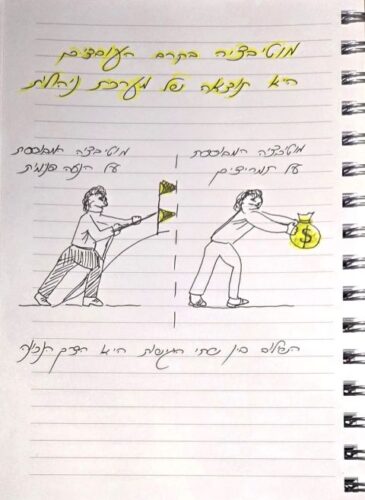 מוטיבציה בקרב העובדים
היא תוצאה של מערכת ניהולית
מוטיבציה המבוססת
על תמריצים
מוטיבציה המבוססת
על הנעה פנימית
$
השילוב בין שתי הגישות היא הדרך הנכונה